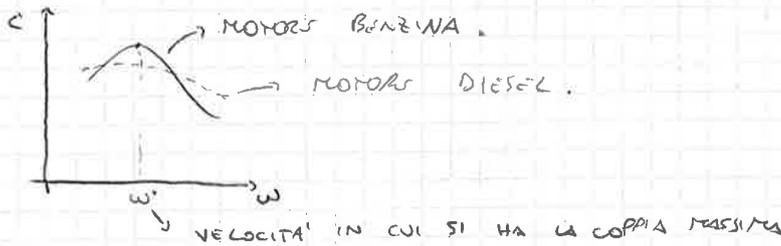 C
MOTORE BENZINA.
MOTORE DIESEL.
ω*
ω
VELOCITA' IN CUI SI HA LA COPPIA MASSIMA